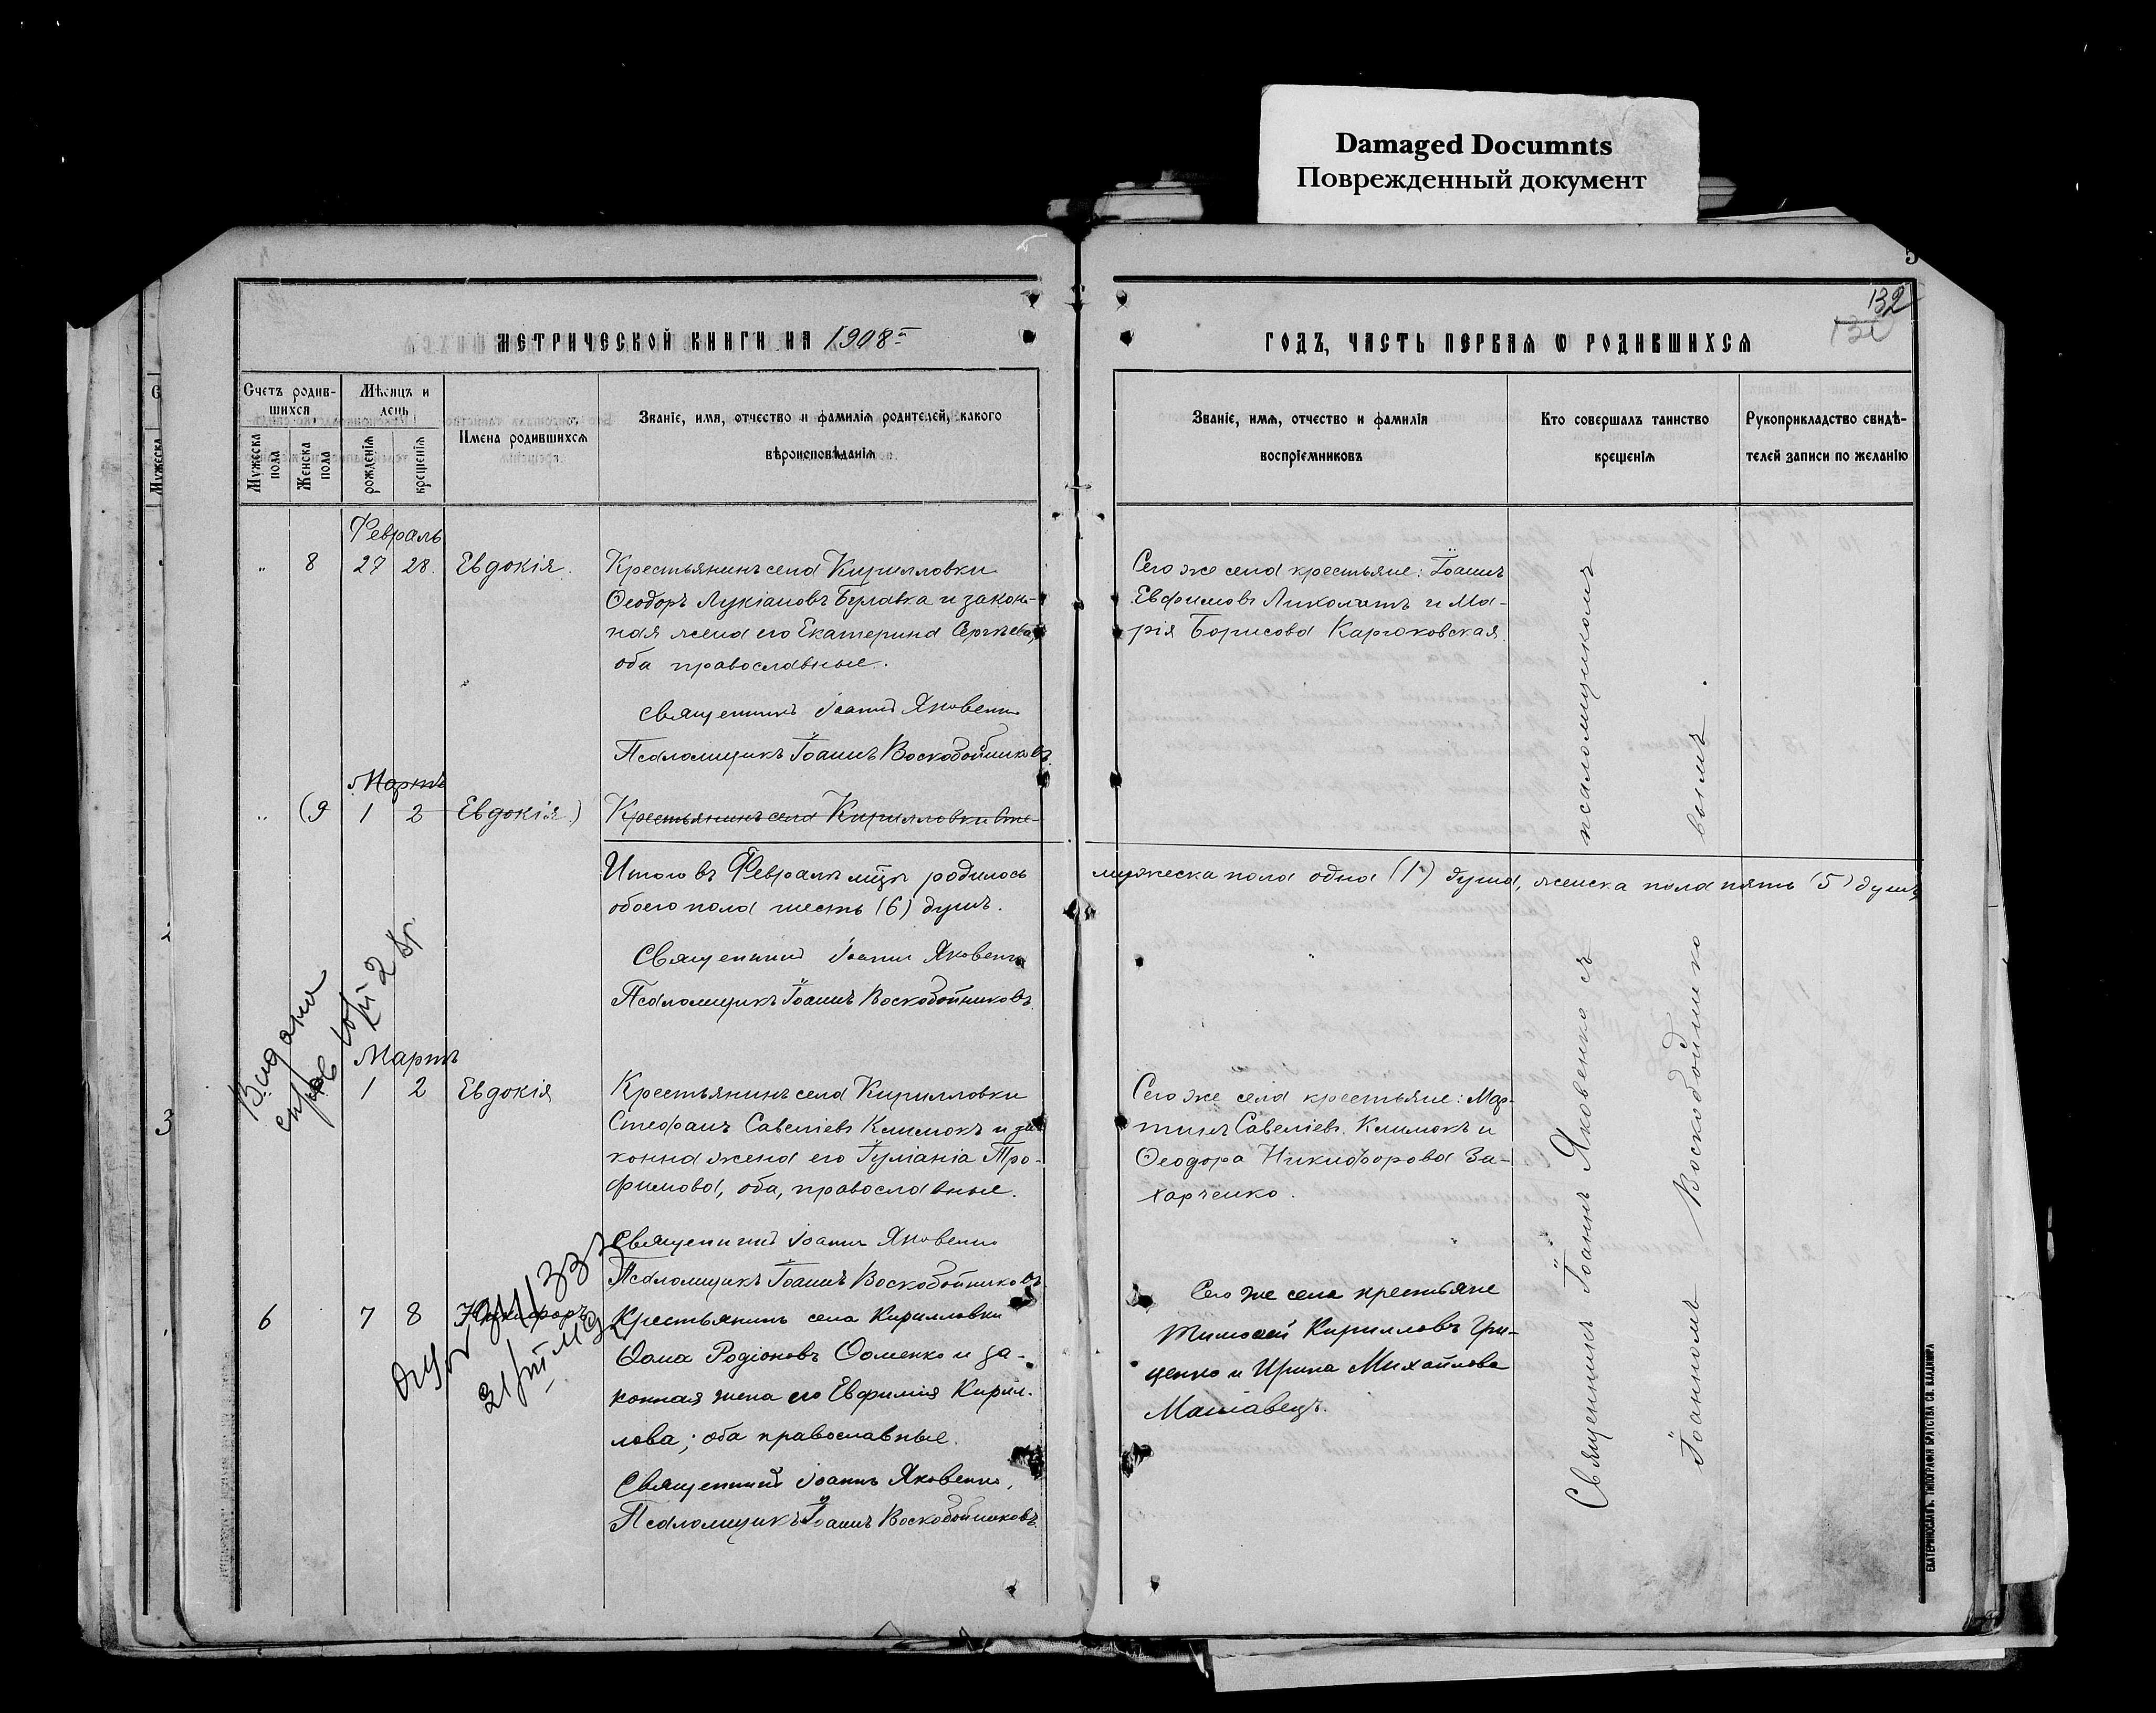 Damaged Documnts
Поврежденный документ
МЕТРИЧЕСКОЙ КНИГИ НА 1908 г
Счетъ родив-
шихся
Мѣсяцъ и
день
Имена родившихся
Званіе, имя, отчество и фамилія родителей, какого
вѣроисповѣданія
Мужеска
пола
Женска
пола
рожденія
крещенія
Февраль
" 8 27 28. Евдокія.
Крестьянинъ села Кирилловки
Ѳеодоръ Лукіановъ Булавка и закон-
ная жена его Екатерина Сергѣева,
оба православные.
Священникъ Іоаннъ Яковенко
Псаломщикъ Іоаннъ Воскобойниковъ.
Мартъ
" (9 1 2 Евдокія.)
Крестьянинъ села Кирилловки
Итого въ Февралѣ мцѣ родилось
обоего пола шесть (6) душъ.
Священникъ Іоаннъ Яковенко
Псаломщикъ Іоаннъ Воскобойниковъ
Мартъ
1 2 Евдокія
Крестьянинъ села Кирилловки
Стефанъ Савеліевъ Климокъ и за-
конна жена его Іуліанія Тро-
фимова, оба, православные.
Священникъ Іоаннъ Яковенко
Псаломщикъ Іоаннъ Воскобойниковъ.
6 7 8 Никифоръ
Крестьянинъ села Кирилловки
Ѳома Родіоновъ Ѳоменко и за-
конная жена его Евфимія Кирил-
лова; оба православные.
Священникъ Іоаннъ Яковенко,
Псаломщикъ Іоаннъ Воскобойниковъ.
Видана
5
132
ГОДЪ, ЧАСТЬ ПЕРВАЯ Ѡ РОДИВШИХСЯ
Званіе, имя, отчество и фамилія
воспріемниковъ
Кто совершалъ таинство
крещенія
Рукоприкладство свидѣ-
телей записи по желанію
Сего же села крестьяне: Іоаннъ
Евфимовъ и Ма-
рія Борисова
мужеска пола одна (1) душа, женска пола пять (5) душъ,
Сего же села крестьяне: Мар-
тинъ Савеліевъ Климокъ и
Ѳеодора Никифорова За-
харченко.
Сего же села крестьяне
Тимоѳей Кирилловъ Гри-
ценко и Ирина Михайлова
Священникъ Іоаннъ Яковенко съ псаломщикомъ
Іоанномъ Воскобойниковымъ.
ЕКАТЕРИНОСЛАВЪ. ТИПОГРАФІЯ БРАТСТВА СВ. ВЛАДИМІРА